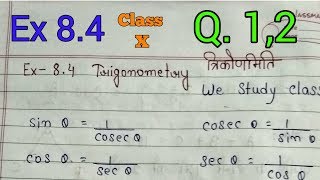 Ex 8.4 Class X Q. 1,2
Ex- 8.4 Trigonometry त्रिकोणमिति
We study clas
sin θ = 1/cosec θ cosec θ = 1/sin θ
cos θ = 1/sec θ sec θ = 1/cos θ